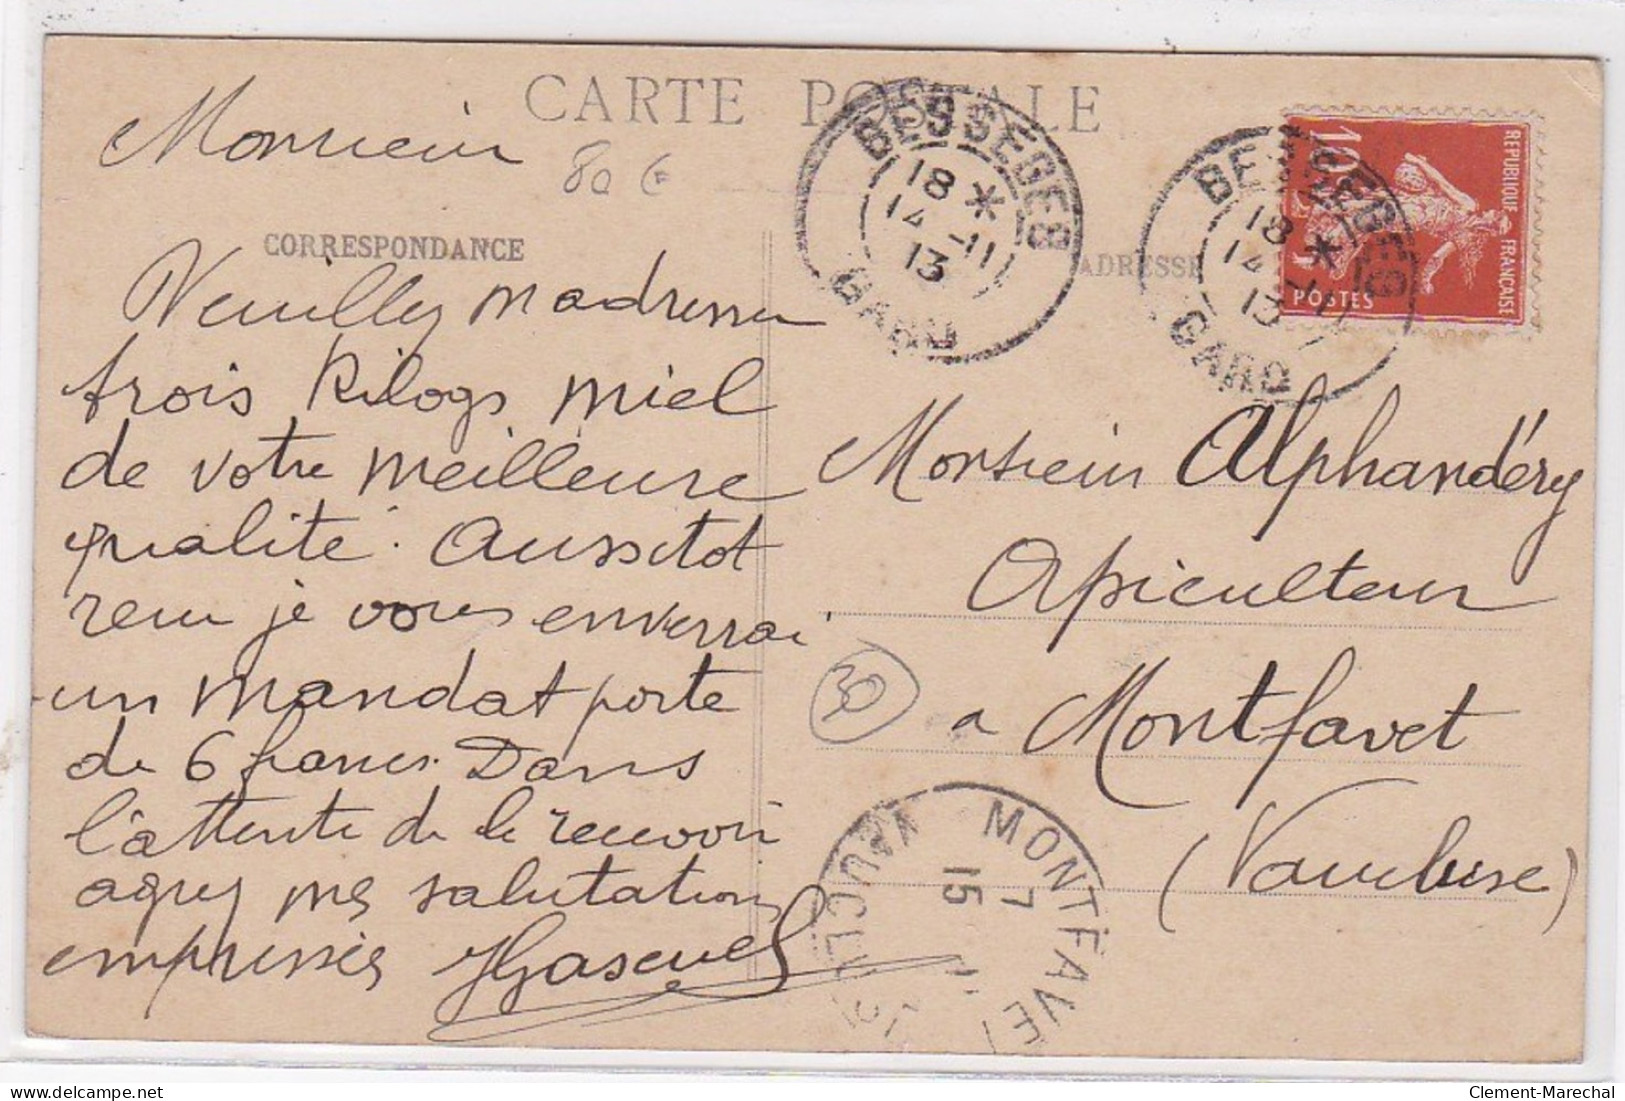 CARTE POSTALE
Monsieur
80 €
CORRESPONDANCE
ADRESSE
BESSEGES
18 *
14 -11
13
GARD
BESSEGES
18 *
14 -11
13
GARD
10c
REPUBLIQUE FRANÇAISE
POSTES
Veuillez m'adresser
trois Kilogs miel
de votre meilleure
qualité. Aussitot
recu je vous enverrai
un mandat poste
de 6 francs. Dans
l'attente de le recevoir
agreez mes salutations
empressées
Monsieur Alphandéry
Apiculteur
30
a Montfavet
(Vaucluse)
MONTFAVET
7
15
VAUCLUSE
delcampe.net
Clement-Marechal